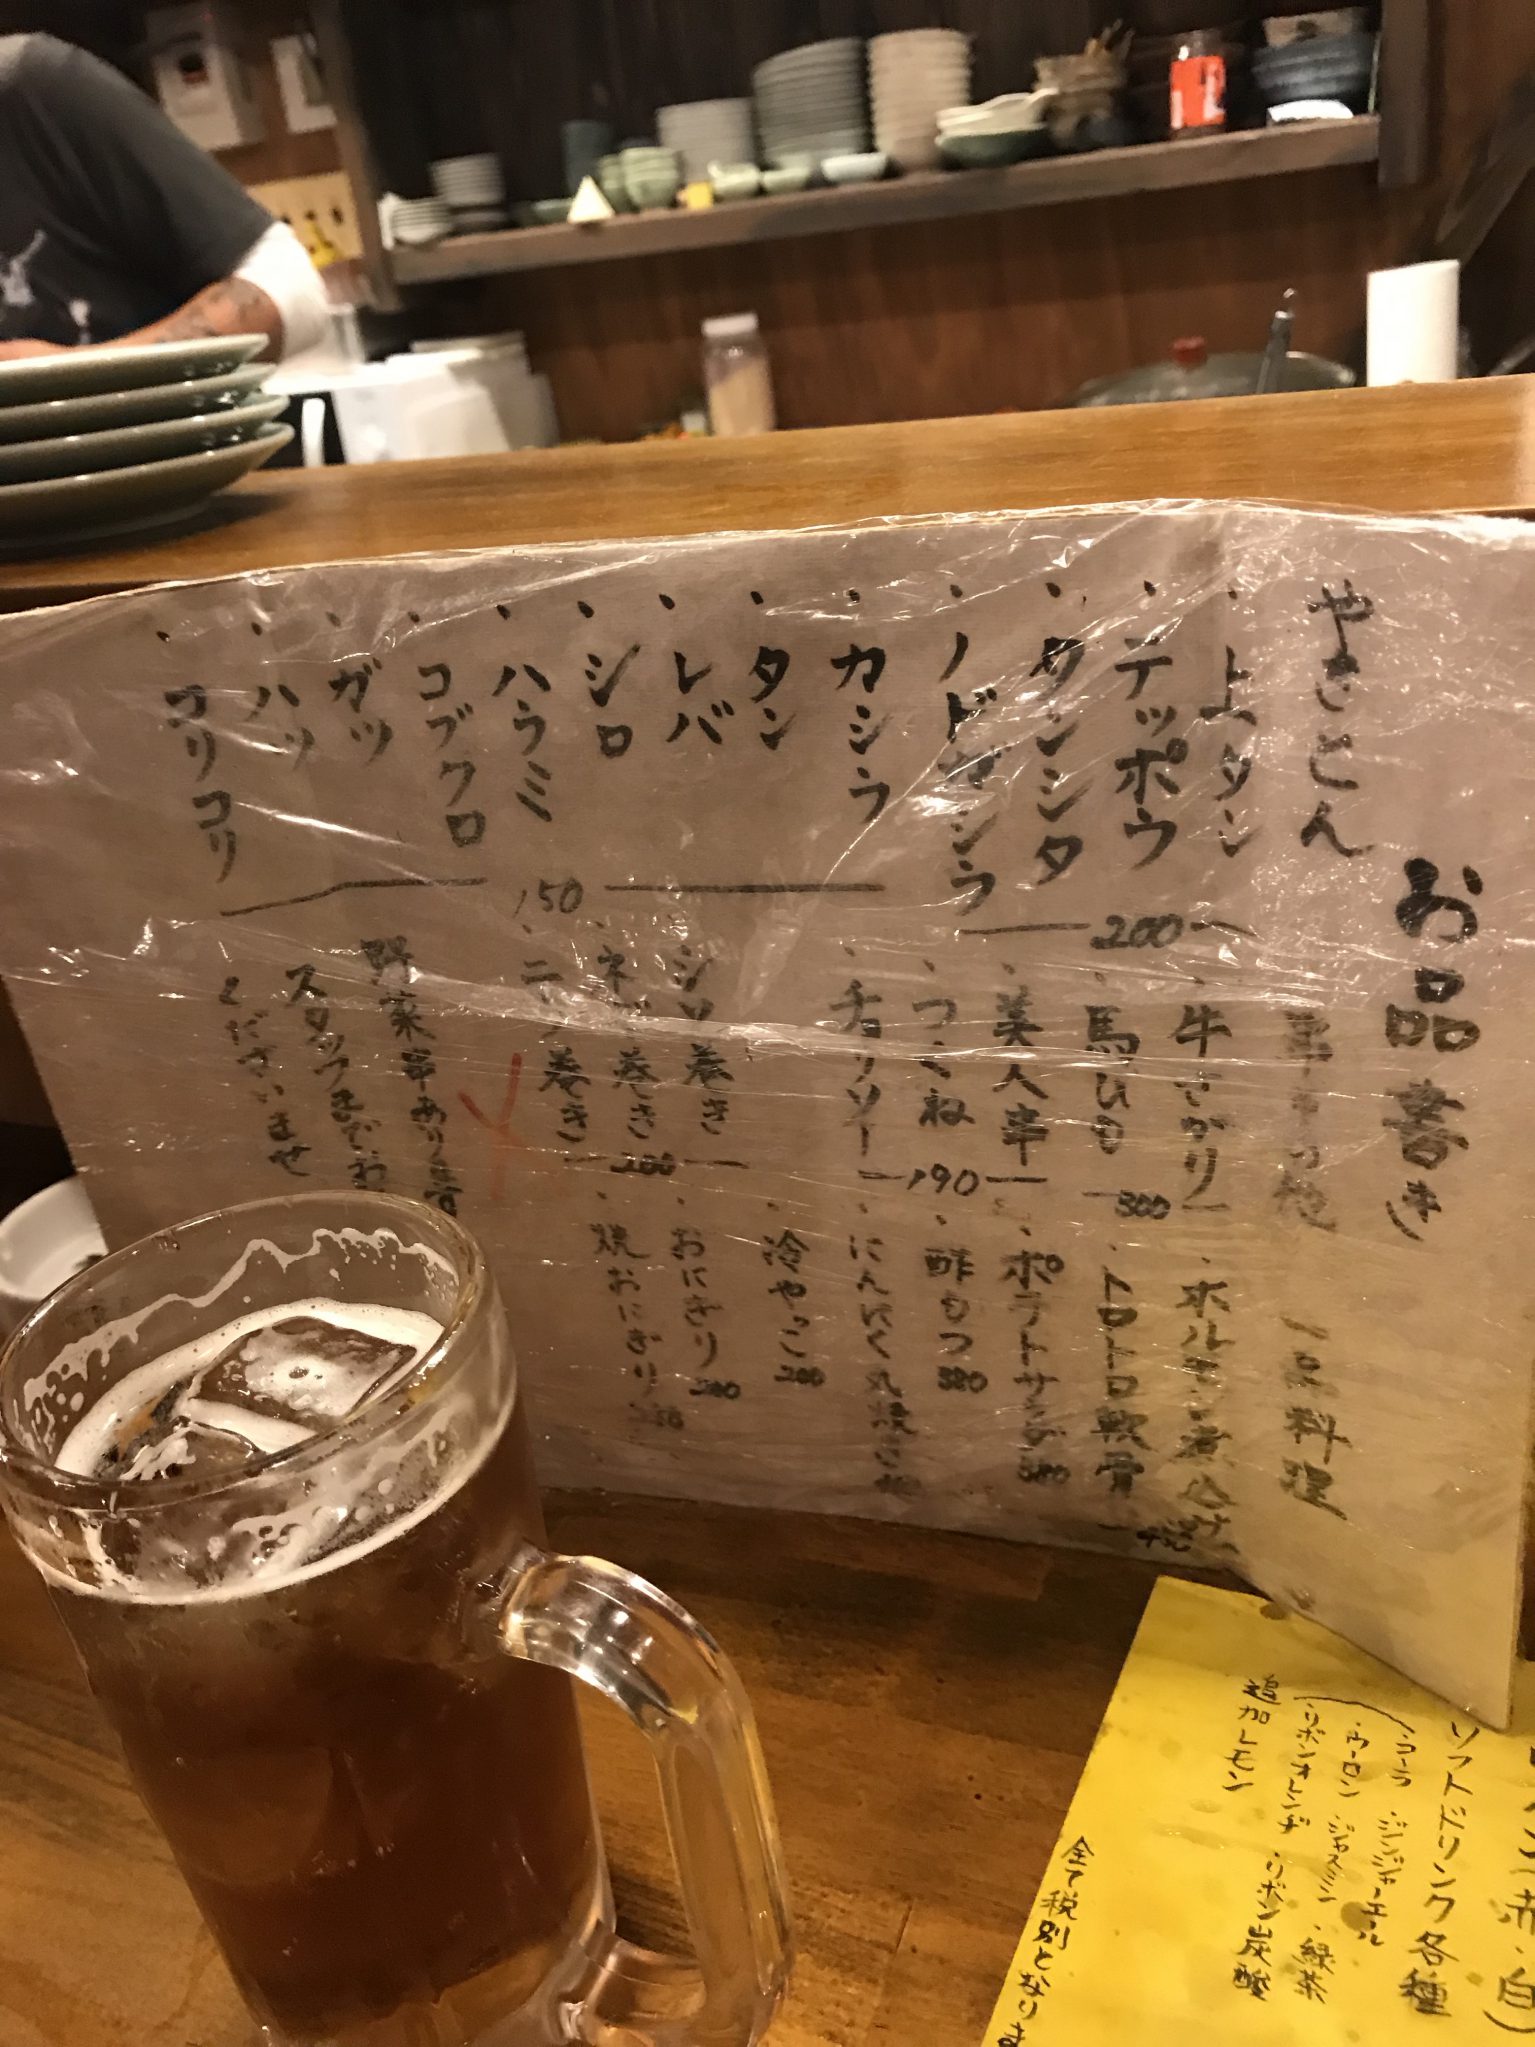 お品書き
やきとん
・上タン
・テッポウ
・タンシタ
・ノドガシラ
200
・カシラ
・タン
・レバ
・シロ
・ハラミ
・コブクロ
・ガツ
・ハツ
・コリコリ
150
串その他
・牛さがり
・馬ひも
300
・美人串
・つくね
・チョリソー
190
・シロ巻き
・ネギ巻き
・ニラ巻き
200
野菜串あります
スタッフまでお
くださいませ
一品料理
・ホルモン煮込み
・トロトロ軟骨
・ポテトサラダ
・酢もつ
・にんにく丸揚げ
・冷やっこ
・おにぎり
・焼おにぎり
(赤・白)
ソフトドリンク各種
・コーラ ・ジンジャーエール
・ウーロン ・ジャスミン ・緑茶
・リボンオレンヂ ・リボン炭酸
追加レモン
全て税別となりま